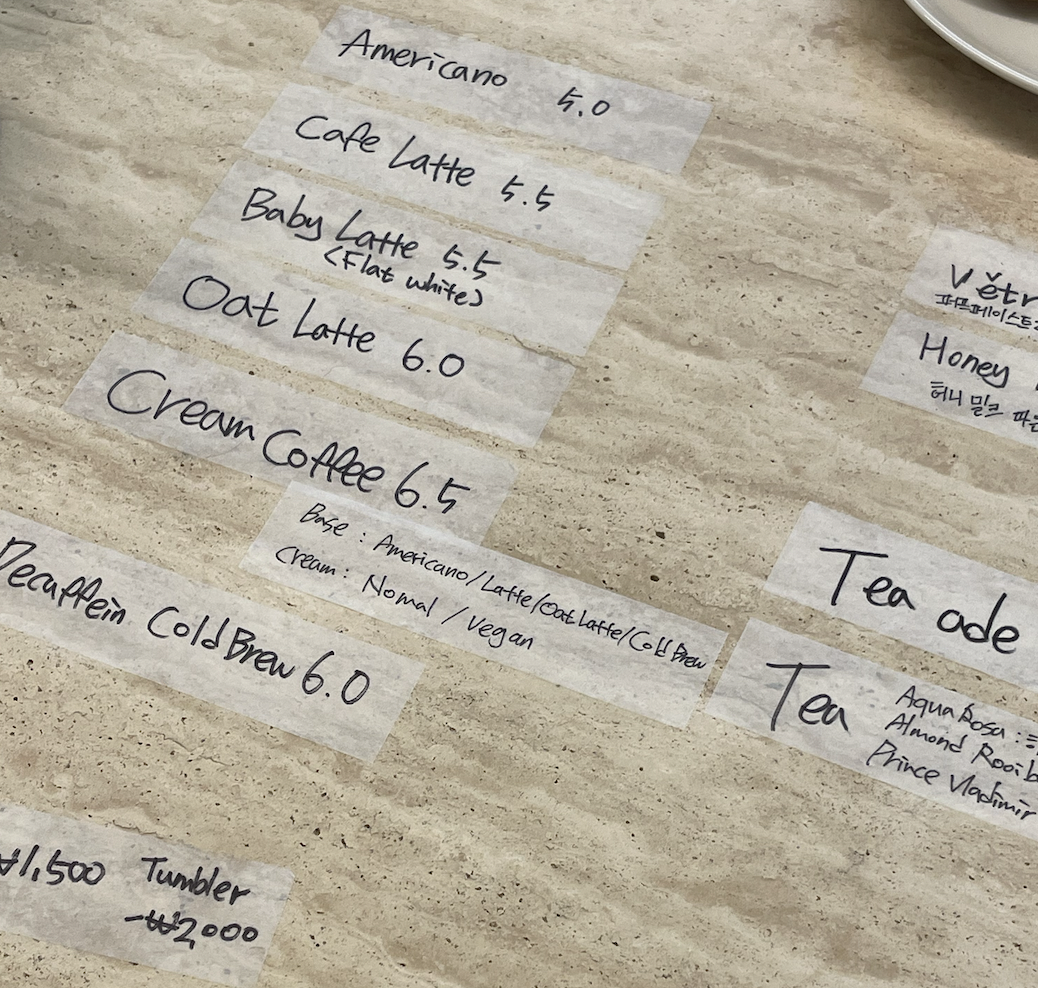 Americano 5.0
Cafe Latte 5.5
Baby Latte 5.5
(Flat white)
Oat Latte 6.0
Cream Coffee 6.5
Base : Americano/Latte/Oat Latte/Cold Brew
Cream : Nomal / Vegan
Decaffein Cold Brew 6.0
₩1,500 Tumbler
-₩2,000
Větr
퍼프페이스트
Honey
허니 밀크
Tea ade
Tea
Aqua Rosa :
Almond Rooib
Prince Vladimir